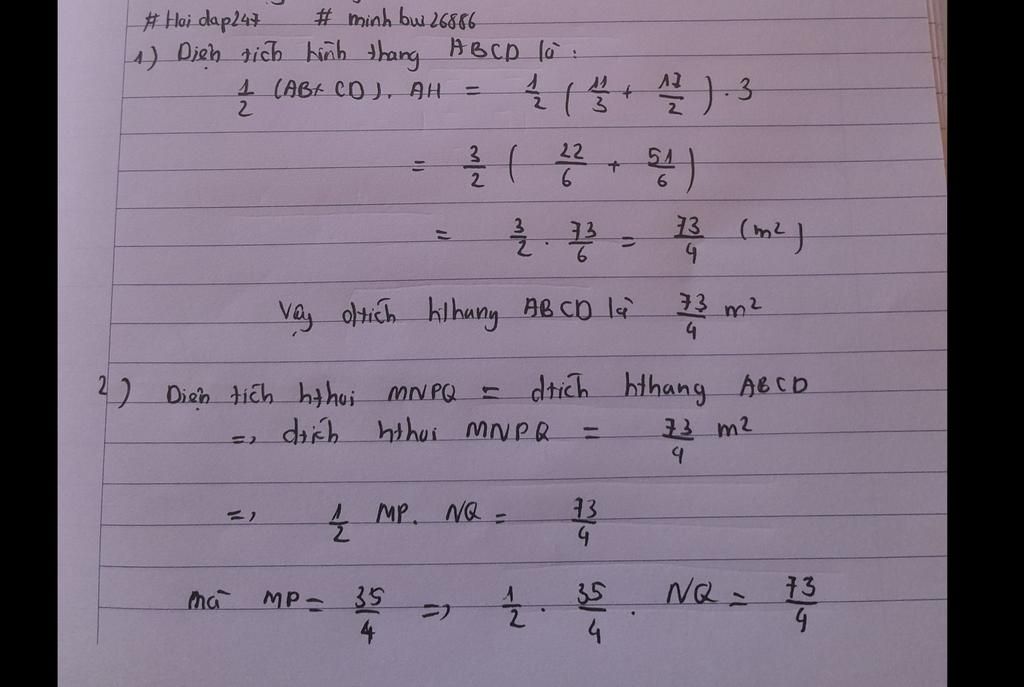 #Hoidap247 # minhbui26886
1) Diện tích hình thang ABCD là:
1/2 (AB+ CD). AH = 1/2 (11/3 + 17/2) . 3
= 3/2 ( 22/6 + 51/6 )
= 3/2 . 73/6 = 73/4 (m2)
Vậy dtích hthang ABCD là 73/4 m2
2) Diện tích hthoi MNPQ = dtích hthang ABCD
=> dtích hthoi MNPQ = 73/4 m2
=> 1/2 MP. NQ = 73/4
mà MP = 35/4 => 1/2 . 35/4 . NQ = 73/4